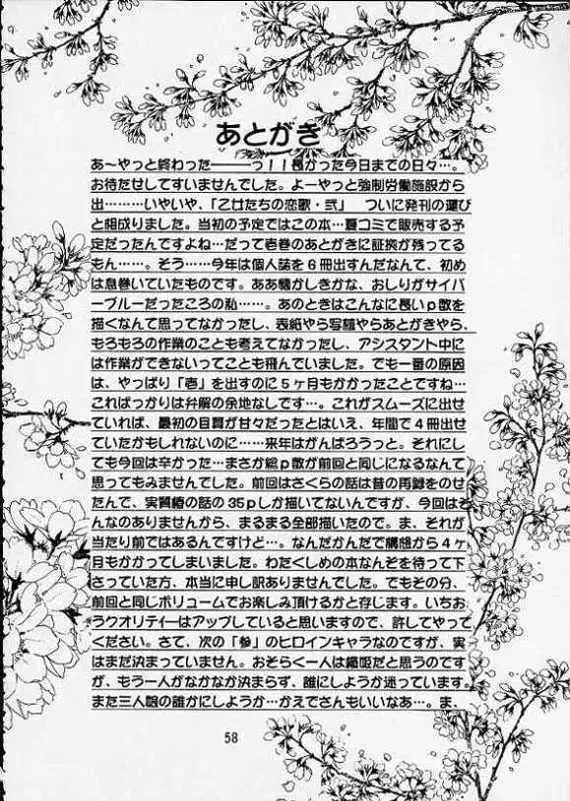 あとがき
あ～やっと終わった————っ！！長かった今日までの日々…。
お待たせしてすいませんでした。よーやっと強制労働施設から
出………いやいや、「乙女たちの恋歌・弐」 ついに発刊の運び
と相成りました。当初の予定ではこの本…夏コミで販売する予
定だったんですよね…だって壱巻のあとがきに証拠が残ってる
もん……。そう……今年は個人誌を６冊出すんだなんて、初め
は息巻いていたものです。ああ懐かしきかな、おしりがサイバ
ーブルーだったころの私……。あのときはこんなに長いｐ数を
描くなんて思ってなかったし、表紙やら写植やらあとがきやら、
もろもろの作業のことも考えてなかったし、アシスタント中に
は作業ができないってことも飛んでいました。でも一番の原因
は、やっぱり「壱」を出すのに５ヶ月もかかったことですね…
こればっかりは弁解の余地なしです…。これがスムーズに出せ
ていれば、最初の目算が甘々だったとはいえ、年間で４冊出せ
ていたかもしれないのに……来年はがんばろうっと。それにし
ても今回は辛かった…まさか総ｐ数が前回と同じになるなんて
思ってもみませんでした。前回はさくらの話は昔の再録をのせ
たんで、実質椿の話の35ｐしか描いてないんですが、今回はそ
んなのありませんから、まるまる全部描いたので。ま、それが
当たり前ではあるんですけど…。なんだかんだで構想から４ヶ
月もかかってしまいました。わたくしめの本なんぞを待って下
さっていた方、本当に申し訳ありませんでした。でもその分、
前回と同じボリュームでお楽しみ頂けるかと存じます。いちお
うクオリティーはアップしていると思いますので、許してやって
ください。さて、次の「参」のヒロインキャラなのですが、実
はまだ決まっていません。おそらく一人は織姫だと思うのです
が、もう一人がなかなか決まらず、誰にしようか迷っています。
また三人娘の誰かにしようか…かえでさんもいいなあ…。ま、
58